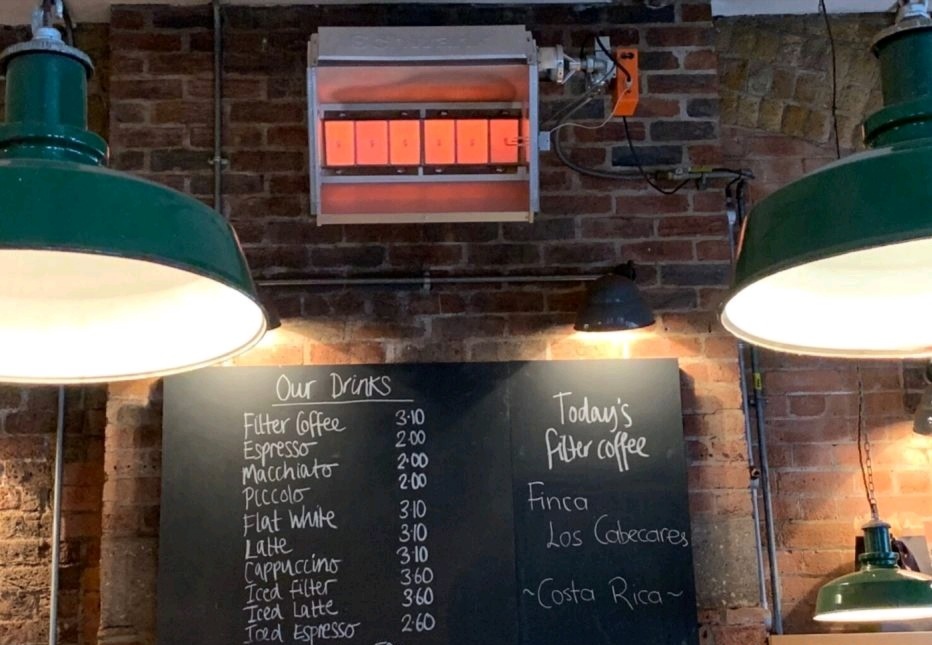 Our Drinks
Filter Coffee 3.10
Espresso 2.00
Macchiato 2.00
Piccolo 2.00
Flat White 3.10
Latte 3.10
Cappuccino 3.10
Iced Filter 3.60
Iced Latte 3.60
Iced Espresso 2.60
Today's
filter coffee
Finca
Los Cabecares
~Costa Rica~